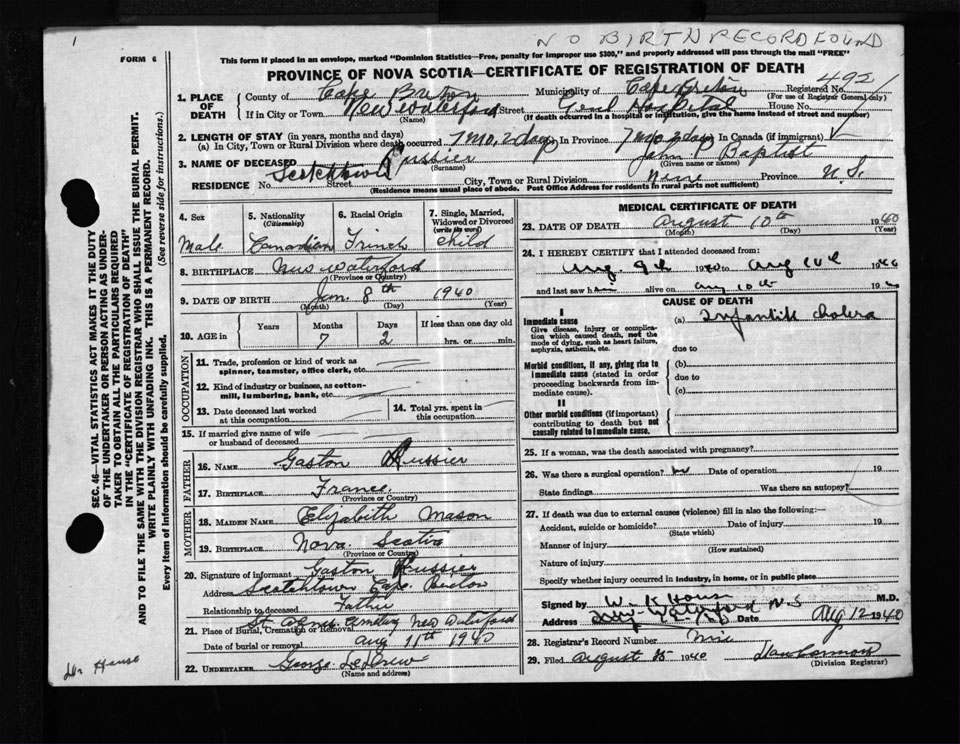 1
NO BIRTH RECORD FOUND
FORM 6
This form if placed in an envelope, marked "Dominion Statistics—Free, penalty for improper use $300," and properly addressed will pass through the mail "FREE"
PROVINCE OF NOVA SCOTIA—CERTIFICATE OF REGISTRATION OF DEATH
1. PLACE OF DEATH
County of Cape Breton Municipality of Cape Breton Registered No. 492
(For use of Registrar General only)
If in City or Town New Waterford Street Genl Hospital House No.
(Name) (If death occurred in a hospital or institution, give the name instead of street and number)
2. LENGTH OF STAY (in years, months and days)
(a) In City, Town or Rural Division where death occurred 7 mo, 2 days In Province 7 mo 2 days In Canada (if immigrant)
3. NAME OF DECEASED Russier John Baptist
(Surname) (Given name or names)
RESIDENCE No. Scotchtown Street City, Town or Rural Division Province N.S.
(Residence means usual place of abode. Post Office Address for residents in rural parts not sufficient)
4. Sex Male
5. Nationality (Citizenship) Canadian
6. Racial Origin French
7. Single, Married, Widowed or Divorced (write the word) child
8. BIRTHPLACE New Waterford
(Province or Country)
9. DATE OF BIRTH Jan. 8th 1940
(Month) (Day) (Year)
10. AGE in Years Months 7 Days 2 If less than one day old hrs. or min.
OCCUPATION
11. Trade, profession or kind of work as spinner, teamster, office clerk, etc.
12. Kind of industry or business, as cotton-mill, lumbering, bank, etc.
13. Date deceased last worked at this occupation
14. Total yrs. spent in this occupation
15. If married give name of wife or husband of deceased
FATHER
16. NAME Gaston Russier
17. BIRTHPLACE France
(Province or Country)
MOTHER
18. MAIDEN NAME Elizabeth Mason
19. BIRTHPLACE Nova Scotia
(Province or Country)
20. Signature of informant Gaston Russier
Address Scotchtown Cape Breton
Relationship to deceased Father
21. Place of Burial, Cremation or Removal New Waterford
Date of burial or removal Aug 11th 1940
22. UNDERTAKER George
(Name and address)
MEDICAL CERTIFICATE OF DEATH
23. DATE OF DEATH August 10th 1940
(Month) (Day) (Year)
24. I HEREBY CERTIFY that I attended deceased from:
Aug. 9th 1940 to Aug 10th 1940
and last saw h alive on Aug 10th 19
CAUSE OF DEATH
I
Immediate cause
Give disease, injury or complication which caused death, not the mode of dying, such as heart failure, asphyxia, asthenia, etc.
(a) Infantile cholera
due to
Morbid conditions, if any, giving rise to immediate cause (stated in order proceeding backwards from immediate cause).
(b)
due to
(c)
II
Other morbid conditions (if important) contributing to death but not causally related to immediate cause.
25. If a woman, was the death associated with pregnancy?
26. Was there a surgical operation? Date of operation 19
State findings Was there an autopsy?
27. If death was due to external causes (violence) fill in also the following:—
Accident, suicide or homicide? Date of injury 19
(State which)
Manner of injury
(How sustained)
Nature of injury
Specify whether injury occurred in industry, in home, or in public place
Signed by W. K. House M.D.
Address New Waterford N.S Date Aug 12 1940
28. Registrar's Record Number
29. Filed August 1940
(Division Registrar)
SEC. 46—VITAL STATISTICS ACT MAKES IT THE DUTY OF THE UNDERTAKER OR PERSON ACTING AS UNDERTAKER TO OBTAIN ALL THE PARTICULARS REQUIRED IN THE "CERTIFICATE OF REGISTRATION OF DEATH" AND TO FILE THE SAME WITH THE DIVISION REGISTRAR WHO SHALL ISSUE THE BURIAL PERMIT.
WRITE PLAINLY WITH UNFADING INK. THIS IS A PERMANENT RECORD.
Every item of information should be carefully supplied. (See reverse side for instructions.)
Dr House